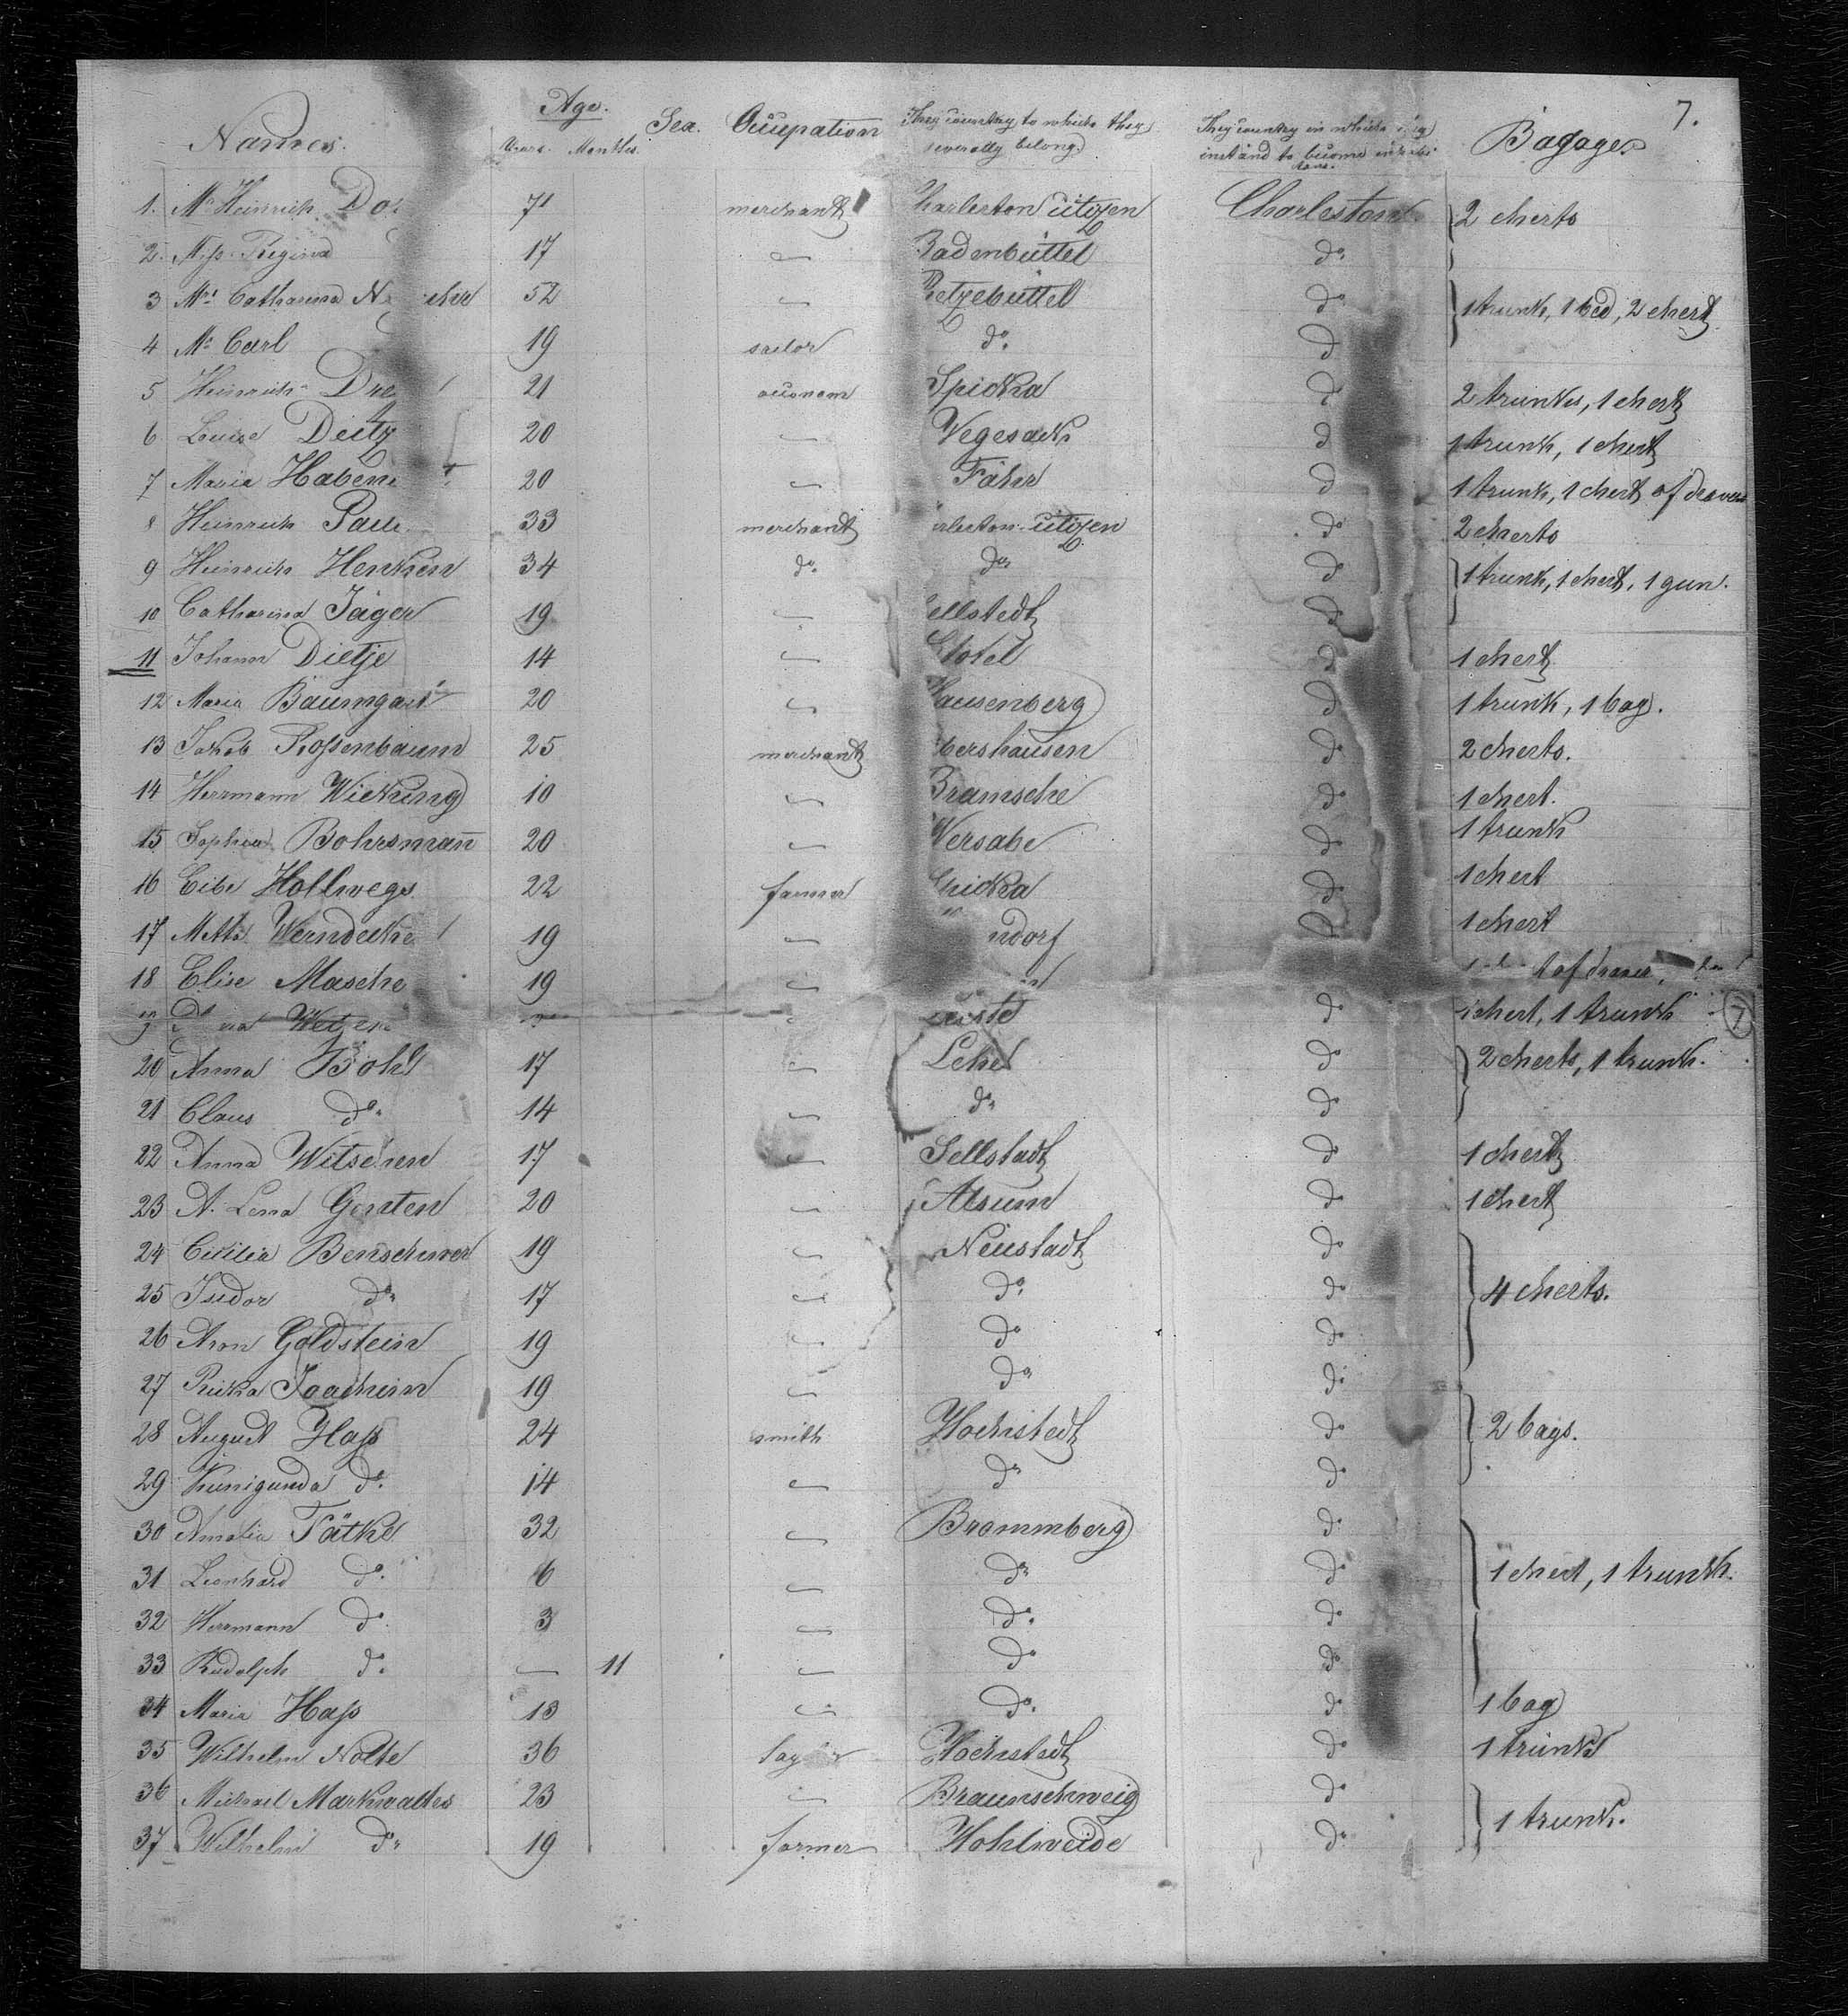 7.
Names. Age. Sex. Occupation They country to which they severally belong. They country in which they intand to become Bagage.
Years. Months.
1. Mr Heinrich 71 merchant Charleston citizen Charleston 2 cherts
2. Miss Regina 17 — Badenbüttel do
3 Mrs Catharina 52 — Retzebüttel do 1 trunk, 1 bed, 2 chert
4 Mr Carl 19 sailor do. do
5 Heinrich 21 oeconom Spicka do 2 trunks, 1 chert
6 Luise Dietz 20 — Vegesack do 1 trunk, 1 chert
7 Maria 20 — Fähr do 1 trunk, 1 chert of
8 Heinrich 33 merchant citizen do 2 cherts
9 Heinrich Henken 34 do. do do 1 trunk, 1 chert, 1 gun.
10 Catharina Jäger 19 — ellstedt do
11 Johann Dietje 14 — Stotel do 1 chert
12 Maria Baumgart 20 — ausenberg do 1 trunk, 1 bag.
13 Jakob Rossenbaum 25 merchant bershausen do 2 cherts.
14 Herrmann Wieking 10 — Bramsche do 1 chert.
15 Sophia Bohrsmann 20 — Wersabe do 1 trunk
16 Eibe Hollwegs 22 farmer Spicka do 1 chert
17 Metta Werndecke 19 — ndorf do 1 chert
18 Elise Masche 19 — of
19 — do 1 chert, 1 trunk 7
20 Anna Bohl 17 — Lehe do 2 cherts, 1 trunk.
21 Claus do. 14 — do do
22 Anna Witschen 17 — Sellstadt do 1 chert
23 A. Lena Gersten 20 — Alsum do 1 chert
24 Cicilia Benschwer 19 — Neustadt do
25 Isidor do 17 — do do 4 cherts.
26 Aron Goldstein 19 — do do
27 Ricka Joachim 19 — do do
28 August Hass 24 smith Hochstedt do 2 bags.
29 Kunigunda do. 14 — do do
30 Amalia Fätke 32 — Brommberg do
31 Leonhard do. 6 — do do 1 chert, 1 trunk.
32 Herrmann do 3 — do. do
33 Rudolph do. — 11 — do do
34 Maria Hass 13 — do. do 1 bag
35 Wilhelm Nolte 36 Hochstedt do 1 trunk
36 Michael Markwaltes 23 — Braunschweig do
37 Wilhelm do 19 farmer Hohlweide do 1 trunk.